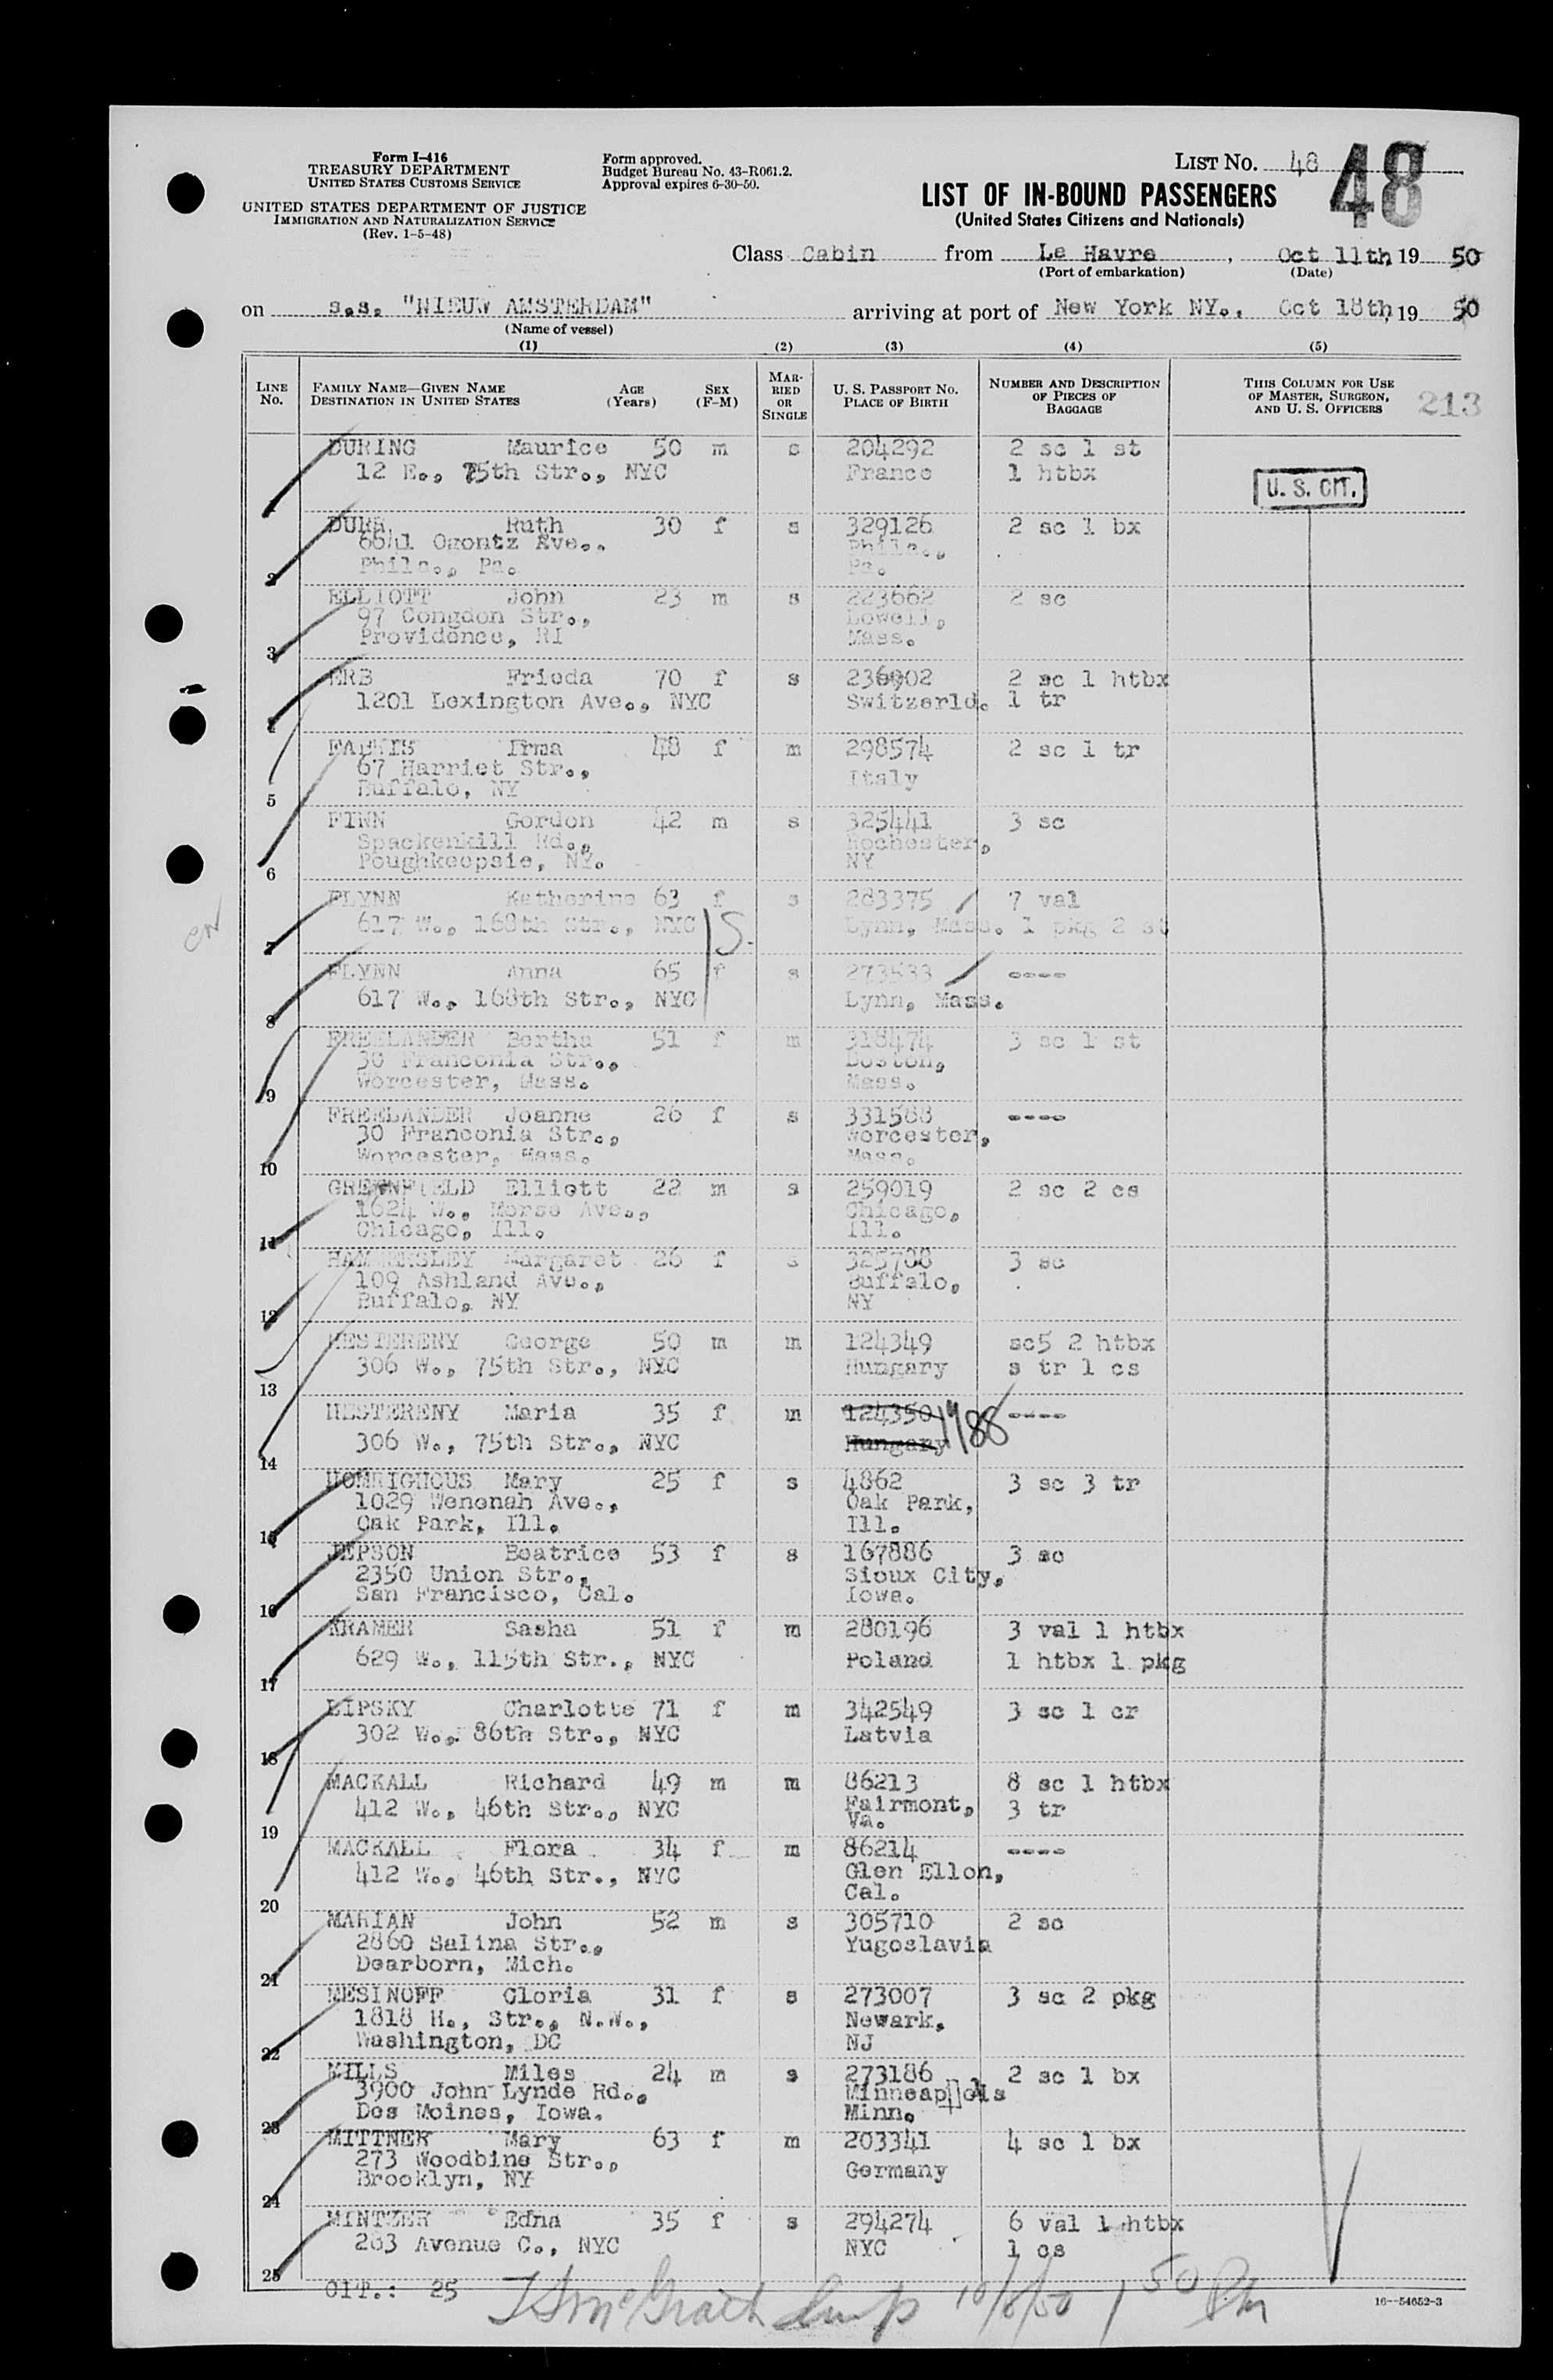 Form I-416
TREASURY DEPARTMENT
UNITED STATES CUSTOMS SERVICE
UNITED STATES DEPARTMENT OF JUSTICE
IMMIGRATION AND NATURALIZATION SERVICE
(Rev. 1-5-48)
Form approved.
Budget Bureau No. 43-R061.2.
Approval expires 6-30-50.
LIST No. 48
48
LIST OF IN-BOUND PASSENGERS
(United States Citizens and Nationals)
Class Cabin from Le Havre, Oct 11th, 19 50
(Port of embarkation) (Date)
on s.s. "NIEUW AMSTERDAM" arriving at port of New York NY., Oct 18th, 19 50
(Name of vessel)
(1) (2) (3) (4) (5)
LINE No.
FAMILY NAME—GIVEN NAME AGE SEX
DESTINATION IN UNITED STATES (Years) (F-M)
MARRIED OR SINGLE
U. S. PASSPORT No.
PLACE OF BIRTH
NUMBER AND DESCRIPTION OF PIECES OF BAGGAGE
THIS COLUMN FOR USE OF MASTER, SURGEON, AND U. S. OFFICERS
213
DURING Maurice 50 m s 204292 2 sc 1 st
12 E., 75th Str., NYC France 1 htbx
U. S. CIT.
1
Ruth 30 f s 329126 2 sc 1 bx
Ogontz Ave., Phila.,
Phila., Pa. Pa.
2
ELLIOTT John 23 m s 223662 2 sc
97 Congdon Str., Lowell,
Providence, RI Mass.
3
ERB Frieda 70 f s 236902 2 sc 1 htbx
1201 Lexington Ave., NYC Switzerld. 1 tr
4
Irma 48 f m 298574 2 sc 1 tr
67 Harriet Str., Italy
Buffalo, NY
5
FINN Gordon 42 m s 325441 3 sc
Spackenkill Rd., Rochester,
Poughkeepsie, NY. NY
6
FLYNN Katherine 63 f s 283375 7 val
617 W., 168th Str., NYC Lynn, Mass. 1 pkg 2 st
7
FLYNN Anna 65 f s 273533 ----
617 W., 168th Str., NYC Lynn, Mass.
8
FREELANDER Bertha 51 f m 318474 3 sc 1 st
30 Franconia Str., Boston,
Worcester, Mass. Mass.
9
FREELANDER Joanne 26 f s 331588 ----
30 Franconia Str., Worcester,
Worcester, Mass. Mass.
10
GREENFIELD Elliott 22 m s 259019 2 sc 2 cs
1624 W., Morse Ave., Chicago,
Chicago, Ill. Ill.
11
HAMMERSLEY Margaret 26 f s 325788 3 sc
109 Ashland Ave., Buffalo,
Buffalo, NY NY
12
HESTERENY George 50 m m 124349 sc5 2 htbx
306 W., 75th Str., NYC Hungary s tr 1 cs
13
HESTERENY Maria 35 f m 124350 ----
306 W., 75th Str., NYC Hungary
14
HOMRIGHOUS Mary 25 f s 4862 3 sc 3 tr
1029 Wenonah Ave., Oak Park,
Oak Park, Ill. Ill.
15
JEPSON Beatrice 53 f s 167886 3 sc
2350 Union Str., Sioux City,
San Francisco, Cal. Iowa.
16
KRAMER Sasha 51 f m 280196 3 val 1 htbx
629 W., 115th Str., NYC Poland 1 htbx 1 pkg
17
LIPSKY Charlotte 71 f m 342549 3 sc 1 cr
302 W., 86th Str., NYC Latvia
18
MACKALL Richard 49 m m 86213 8 sc 1 htbx
412 W., 46th Str., NYC Fairmont, 3 tr
Va.
19
MACKALL Flora 34 f m 86214 ----
412 W., 46th Str., NYC Glen Ellen,
Cal.
20
MARIAN John 52 m s 305710 2 sc
2860 Salina Str., Yugoslavia
Dearborn, Mich.
21
MESINOFF Gloria 31 f s 273007 3 sc 2 pkg
1818 H., Str., N.W., Newark,
Washington, DC NJ
22
MILLS Miles 24 m s 273186 2 sc 1 bx
3900 John Lynde Rd., Minneapolis
Des Moines, Iowa. Minn.
23
MITTNER Mary 63 f m 203341 4 sc 1 bx
273 Woodbine Str., Germany
Brooklyn, NY
24
MINTZER Edna 35 f s 294274 6 val 1 htbx
283 Avenue C., NYC NYC 1 cs
25
CIT.: 25
16--54652-3